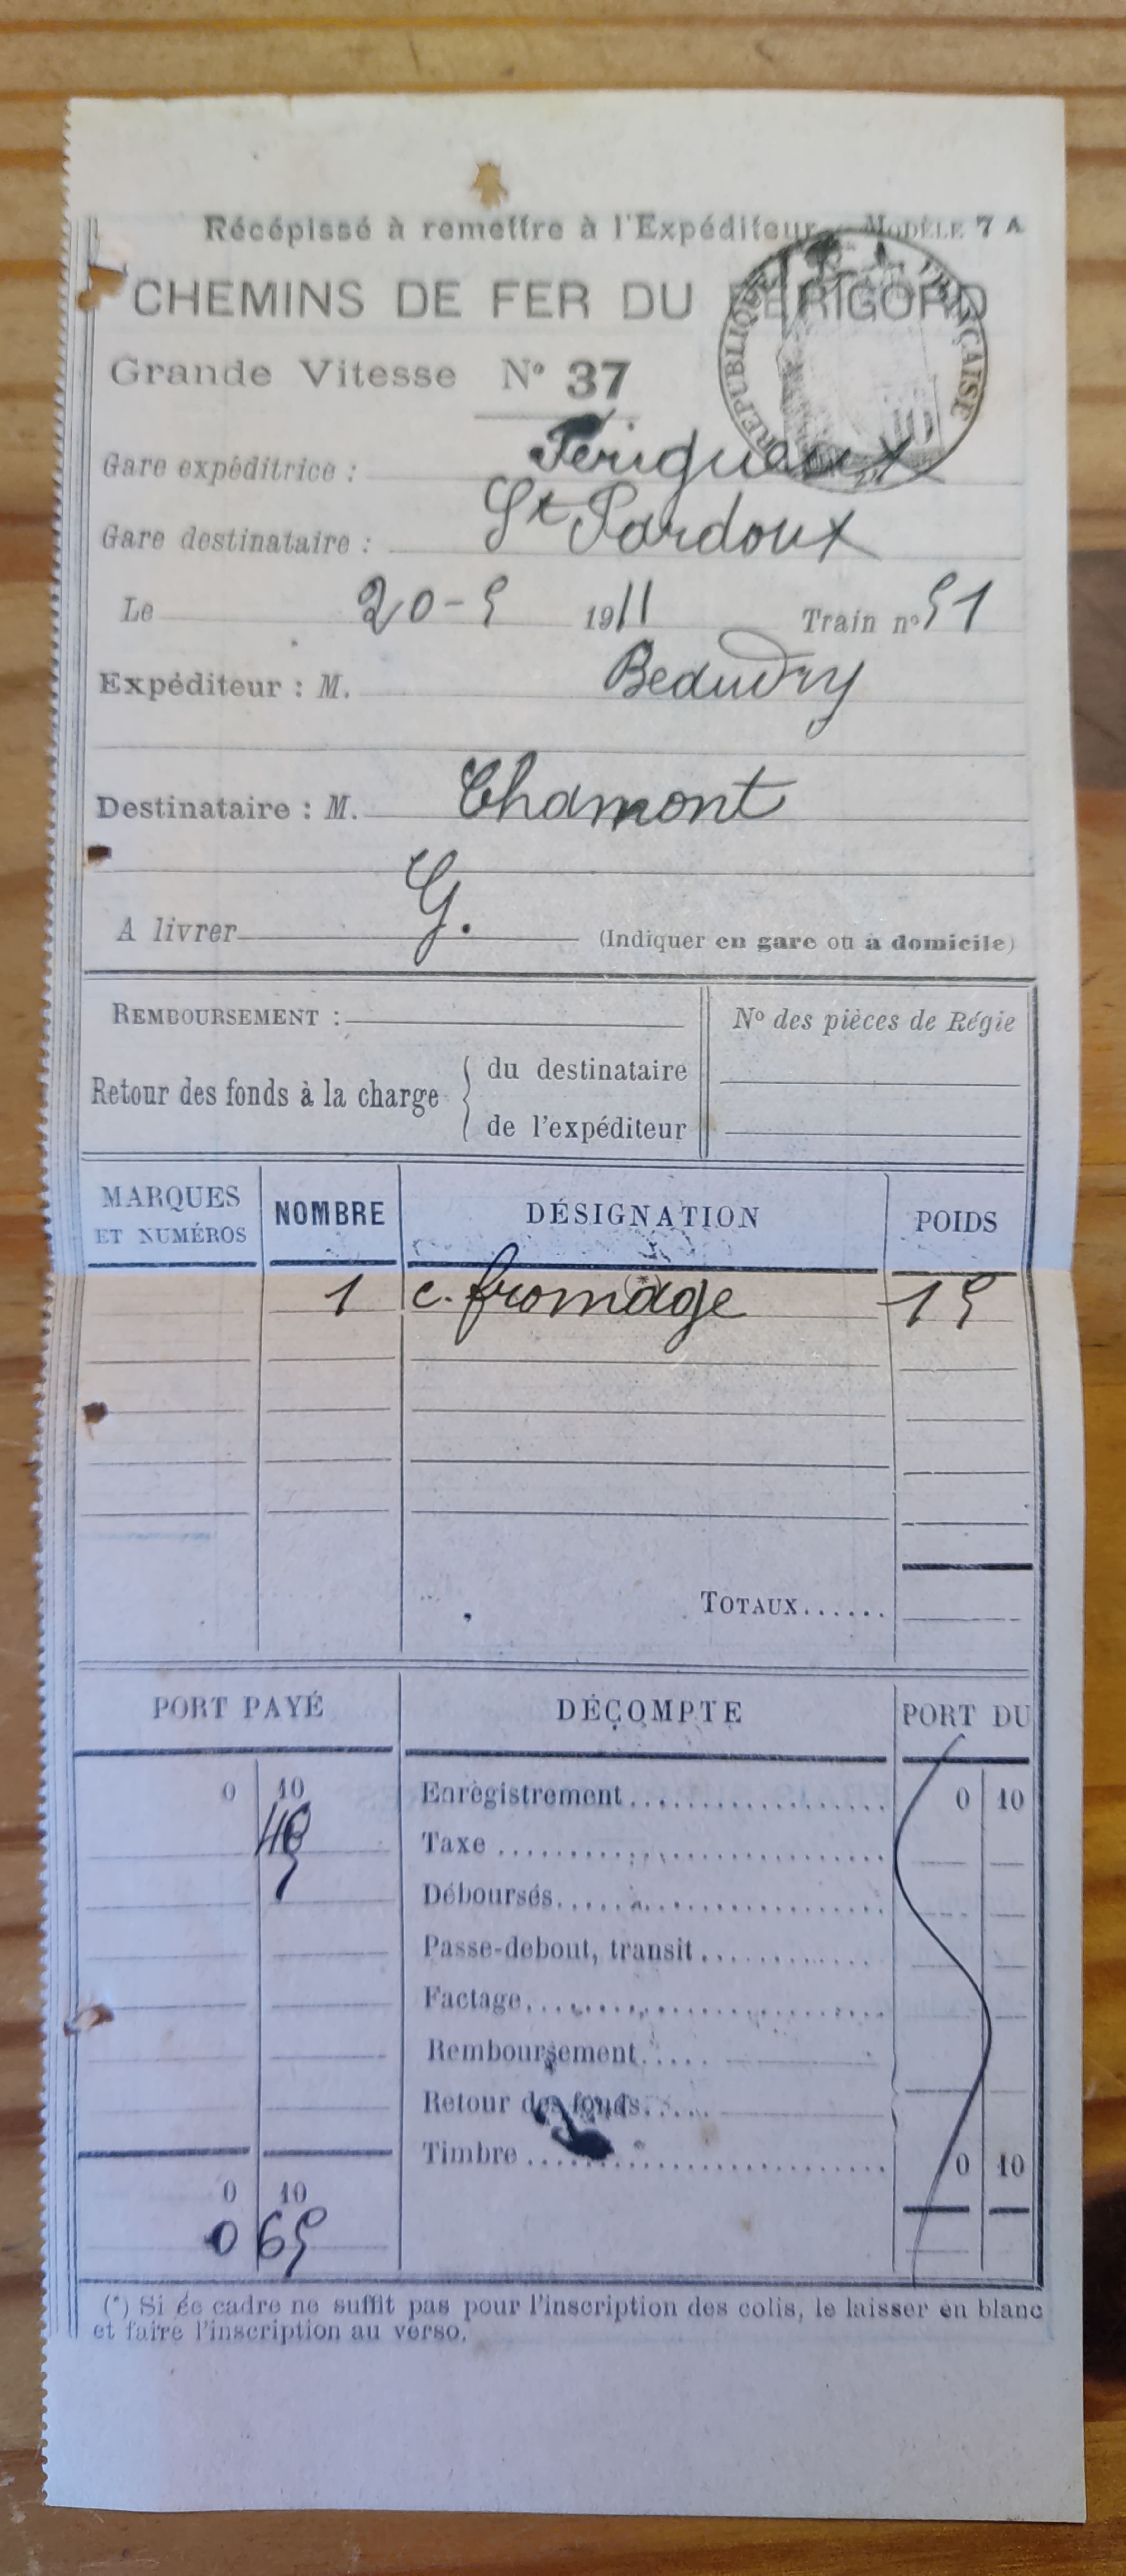 Récépissé à remettre à l'Expéditeur - MODÈLE 7 A
CHEMINS DE FER DU PÉRIGORD
RÉPUBLIQUE FRANÇAISE
Grande Vitesse N° 37
Gare expéditrice : Périgueux
Gare destinataire : St Pardoux
Le 20-5 1911 Train n° 51
Expéditeur : M. Beaudry
Destinataire : M. Chamont
A livrer G. (Indiquer en gare ou à domicile)
REMBOURSEMENT : N° des pièces de Régie
Retour des fonds à la charge { du destinataire
de l'expéditeur
MARQUES ET NUMÉROS NOMBRE DÉSIGNATION POIDS
(*)
1 c. fromage 15
TOTAUX......
PORT PAYÉ DÉCOMPTE PORT DU
0 10 Enregistrement 0 10
Taxe
5 Déboursés
Passe-debout, transit
Factage
Remboursement
Retour des fonds
Timbre 0 10
0 10
0 65
(*) Si ce cadre ne suffit pas pour l'inscription des colis, le laisser en blanc
et faire l'inscription au verso.